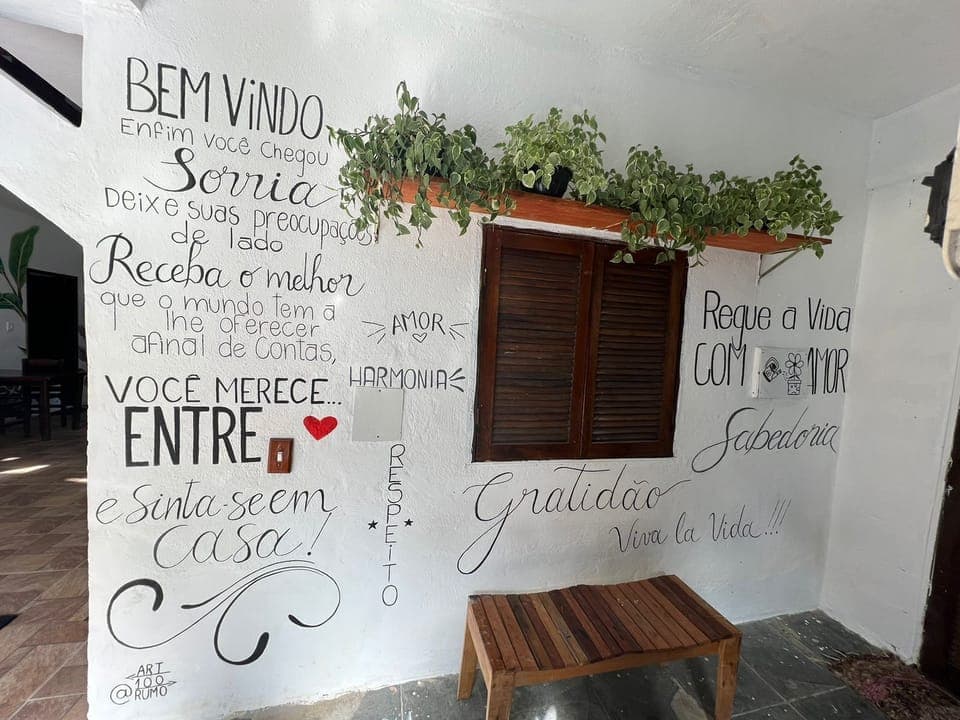 BEM VINDO
Enfim você chegou
Sorria
Deixe suas preocupações
de lado
Receba o melhor
que o mundo tem a
lhe oferecer
afinal de contas,
VOCÊ MERECE...
ENTRE
e Sinta-se em
casa!
ART
100
@RUMO
AMOR
HARMONIA
RESPEITO
Gratidão
Viva la Vida!!!
Regue a Vida
COM AMOR
Sabedoria